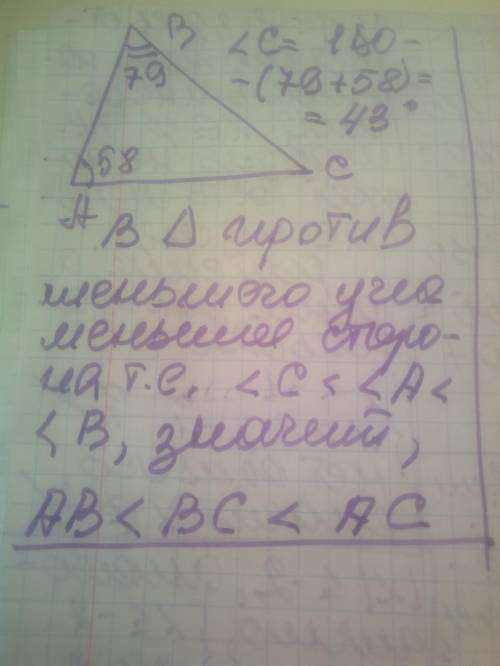 B <C= 180 -
79 -(79+58)=
= 43°
58
A C
В Δ против
меньшего угла
меньшая сторо-
на т.е. <C < <A <
<B, значит,
AB < BC < AC